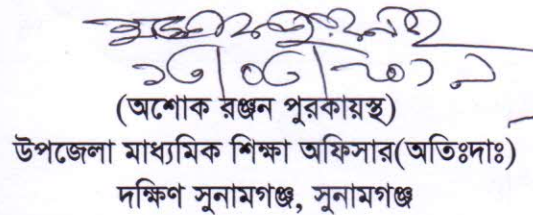 (অশোক রঞ্জন পুরকায়স্থ)
উপজেলা মাধ্যমিক শিক্ষা অফিসার(অতিঃদাঃ)
দক্ষিণ সুনামগঞ্জ, সুনামগঞ্জ